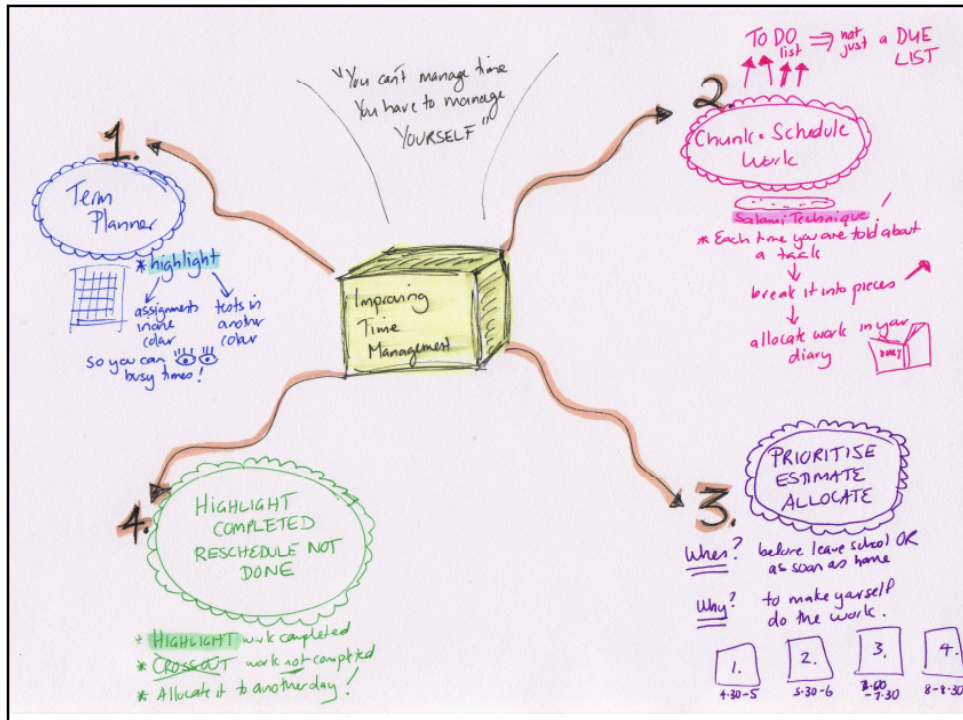 "You can't manage time
You have to manage
YOURSELF"
Improving
Time
Management
1.
Term
Planner
* highlight
assignments
in one
colour
tests in
another
colour
so you can
busy times!
2.
TO DO list ⇒ not just a DUE
LIST
Chunk + Schedule
Work
Salami Technique!
* Each time you are told about
a task
break it into pieces
allocate work in your
diary
DIARY
3.
PRIORITISE
ESTIMATE
ALLOCATE
When? before leave school OR
as soon as home
Why? to make yourself
do the work.
1.
4.30-5
2.
5.30-6
3.
-7.30
4.
8-8.30
4.
HIGHLIGHT
COMPLETED
RESCHEDULE NOT
DONE
* HIGHLIGHT work completed
* CROSS OUT work not completed
* Allocate it to another day!